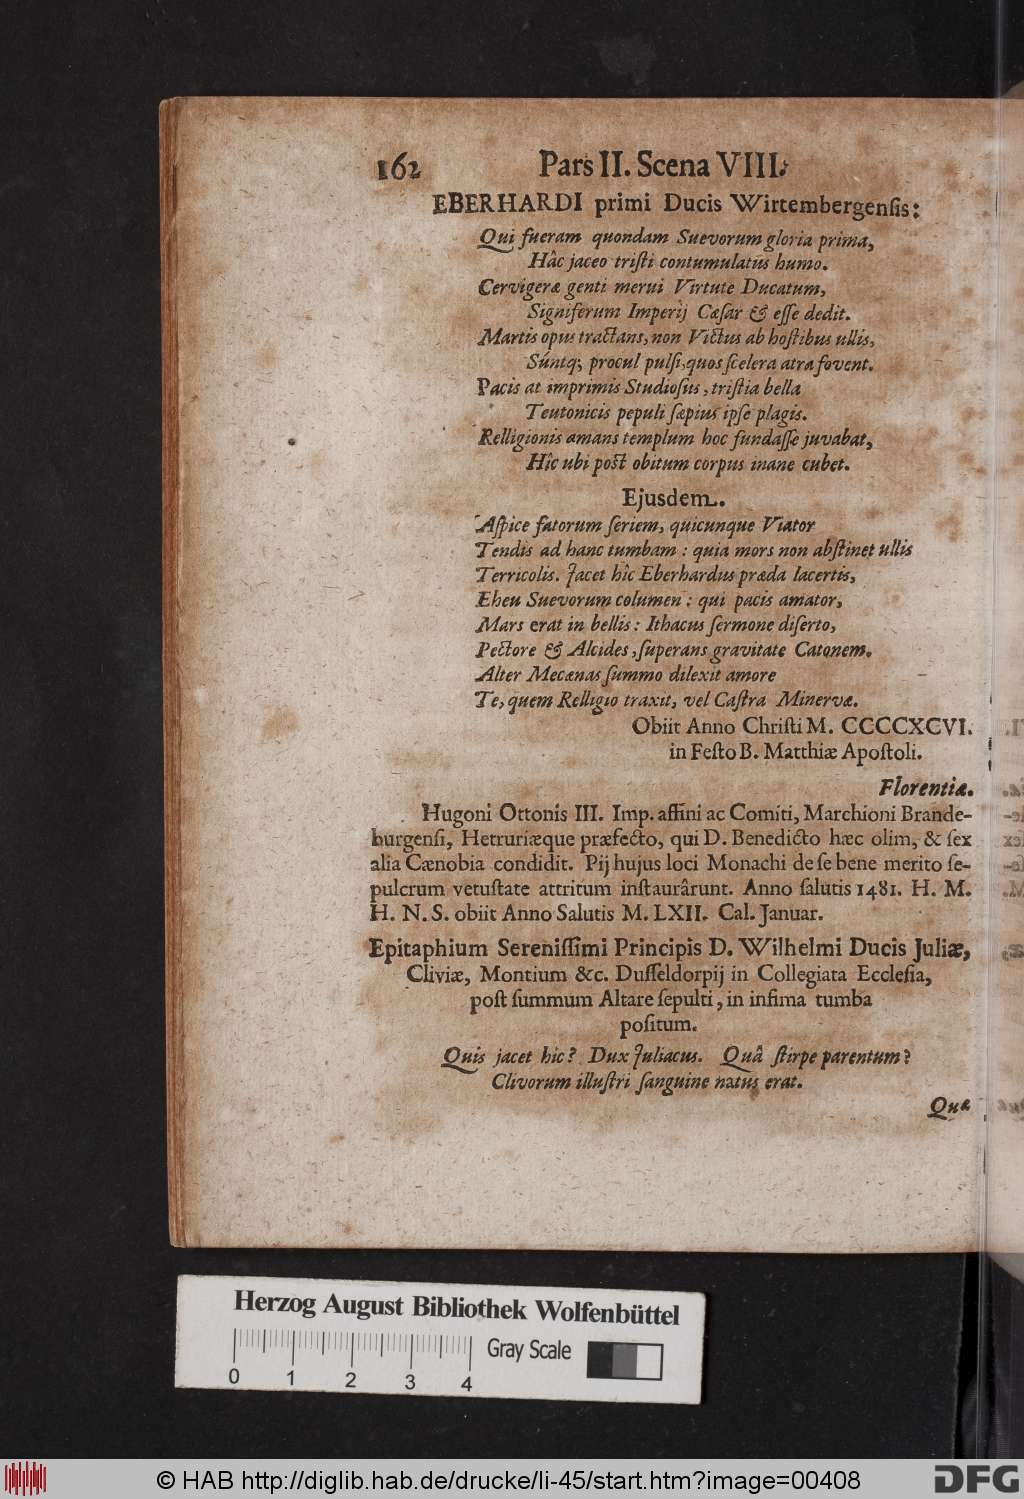 162 Pars II. Scena VIII.
EBERHARDI primi Ducis Wirtembergenſis:
Qui fueram quondam Suevorum gloria prima,
Hâc jaceo triſti contumulatus humo.
Cervigeræ genti merui Virtute Ducatum,
Signiferum Imperij Cæſar & eſſe dedit.
Martis opus tractans, non Victus ab hoſtibus ullis,
Súntq; procul pulſi, quos ſcelera atra fovent.
Pacis at imprimis Studioſus, triſtia bella
Teutonicis pepuli ſæpius ipſe plagis.
Relligionis amans templum hoc fundaſſe juvabat,
Hîc ubi poſt obitum corpus inane cubet.
Ejusdem.
Aſpice fatorum ſeriem, quicunque Viator
Tendis ad hanc tumbam : quia mors non abſtinet ullis
Terricolis. Jacet hîc Eberhardus præda lacertis,
Eheu Suevorum columen : qui pacis amator,
Mars erat in bellis : Ithacus ſermone diſerto,
Pectore & Alcides, ſuperans gravitate Catonem.
Alter Mecænas ſummo dilexit amore
Te, quem Relligio traxit, vel Caſtra Minervæ.
Obiit Anno Chriſti M. CCCCXCVI.
in Feſto B. Matthiæ Apoſtoli.
Florentiæ.
Hugoni Ottonis III. Imp. affini ac Comiti, Marchioni Brande-
burgenſi, Hetruriæque præfecto, qui D. Benedicto hæc olim, & ſex
alia Cænobia condidit. Pij hujus loci Monachi de ſe bene merito ſe-
pulcrum vetuſtate attritum inſtaurârunt. Anno ſalutis 1481. H. M.
H. N. S. obiit Anno Salutis M. LXII. Cal. Januar.
Epitaphium Sereniſſimi Principis D. Wilhelmi Ducis Juliæ,
Cliviæ, Montium &c. Duſſeldorpij in Collegiata Eccleſia,
poſt ſummum Altare ſepulti, in infima tumba
poſitum.
Quis jacet hic? Dux Juliacus. Quâ ſtirpe parentum?
Clivorum illuſtri ſanguine natus erat.
Quæ
Herzog August Bibliothek Wolfenbüttel
0 1 2 3 4 Gray Scale
© HAB http://diglib.hab.de/drucke/li-45/start.htm?image=00408
DFG